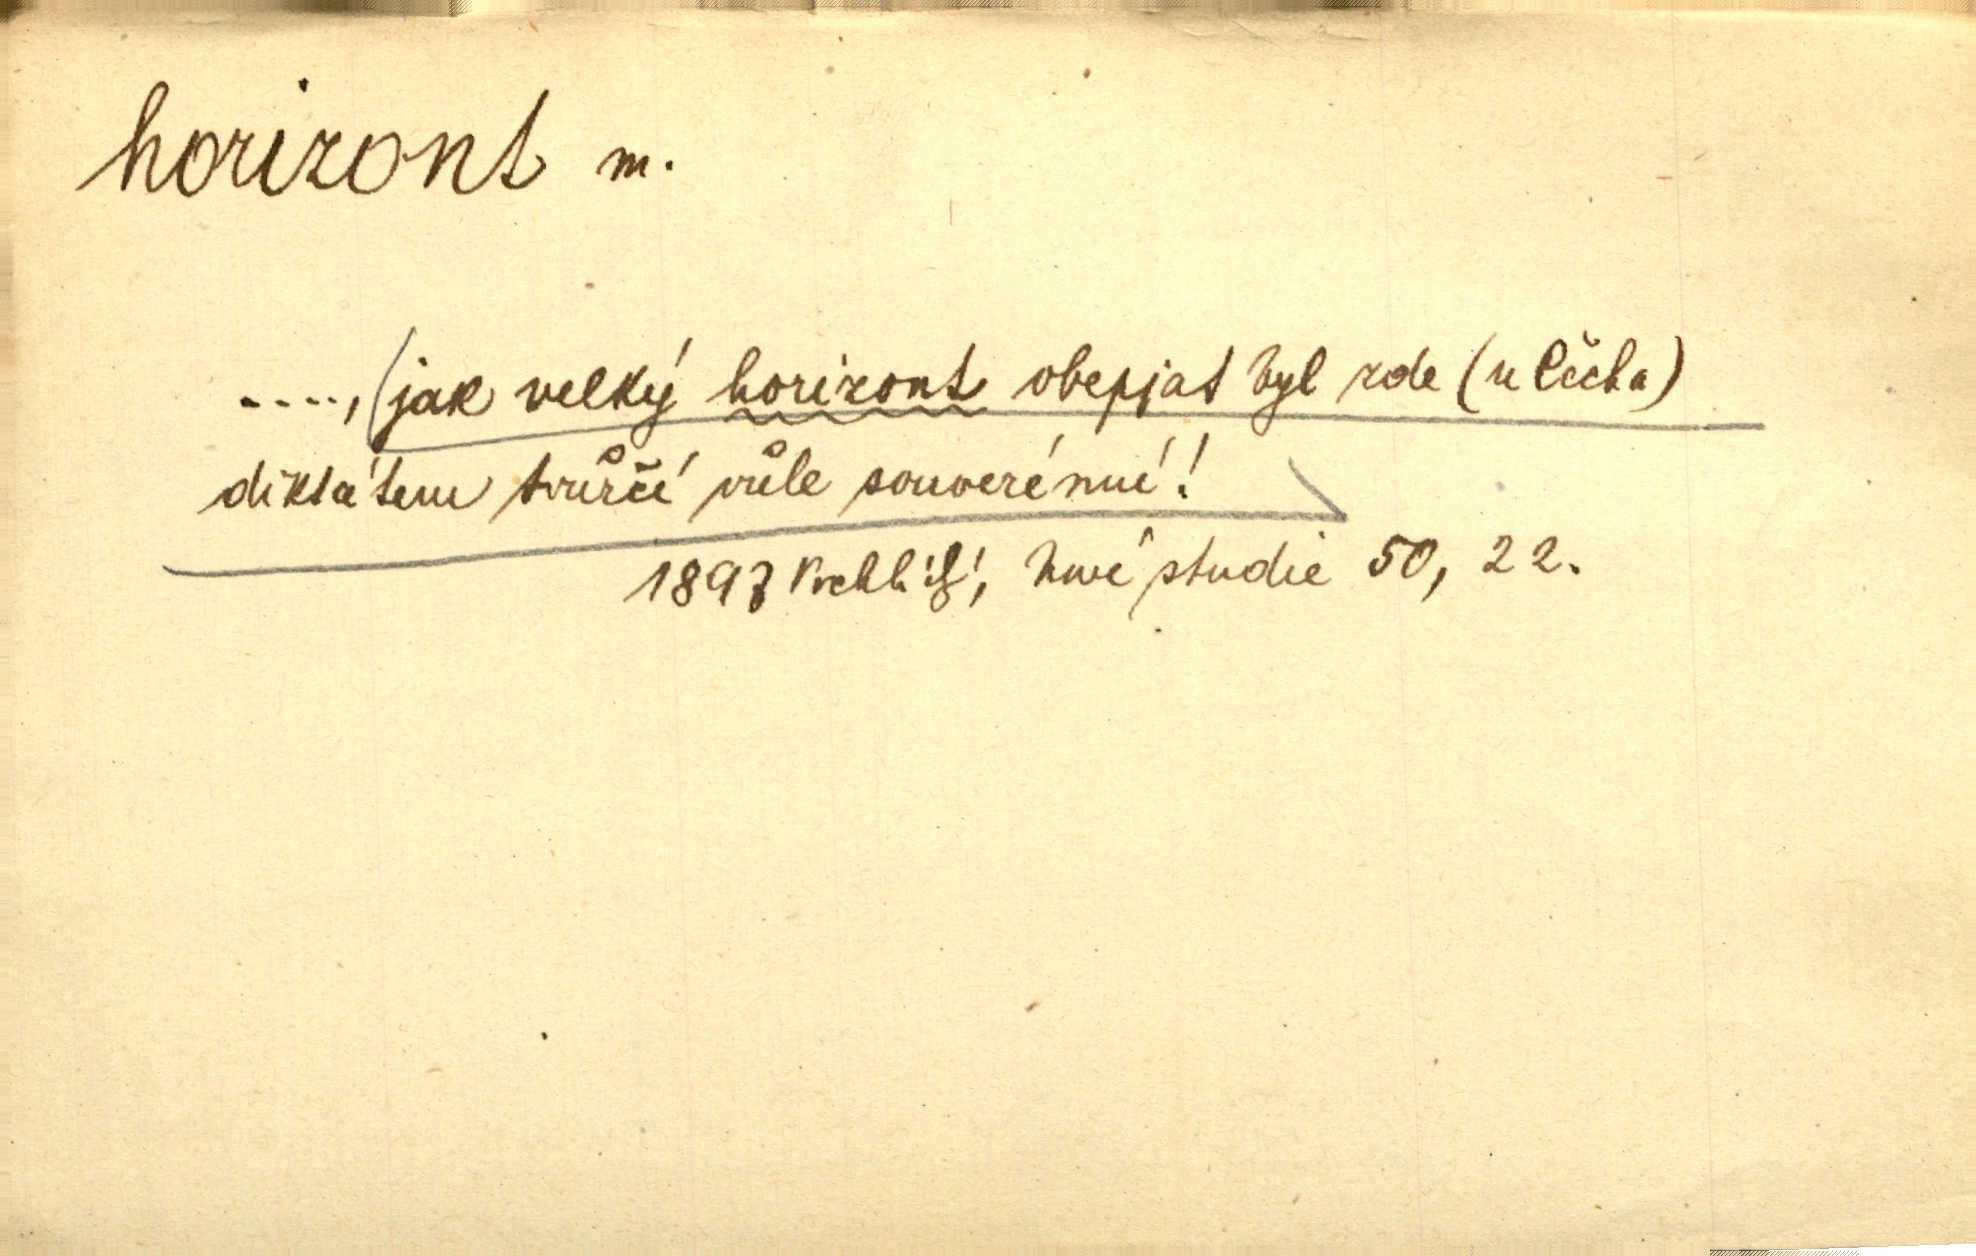 horizont m.
...., jak velký horizont obepjat byl zde (u Čecha)
diktátem tvůrčí vůle souverénní!
1897 Vrchlický, Nové studie 50, 22.